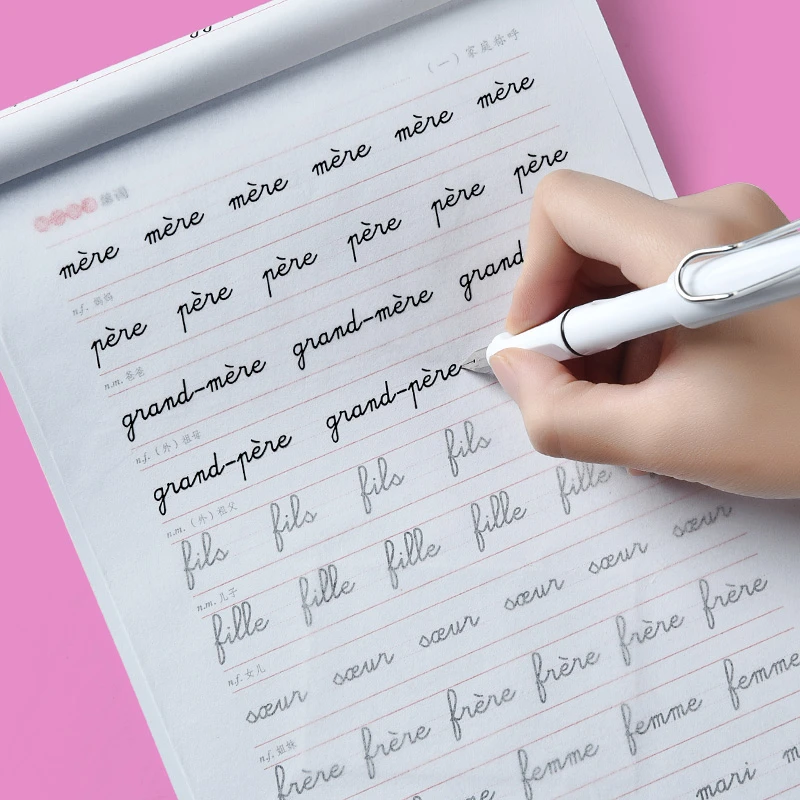 (一) 家庭称呼
单词
mère mère mère mère mère mère
n.f. 妈妈
père père père père père père
n.m. 爸爸
grand-mère grand-mère grand
n.f. (外) 祖母
grand-père grand-père
n.m. (外) 祖父
fils fils fils fils
n.m. 儿子
fille fille fille fille fille
n.f. 女儿
sœur sœur sœur sœur sœur sœur
n.f. 姐妹
frère frère frère frère frère frère
femme femme femme
mari